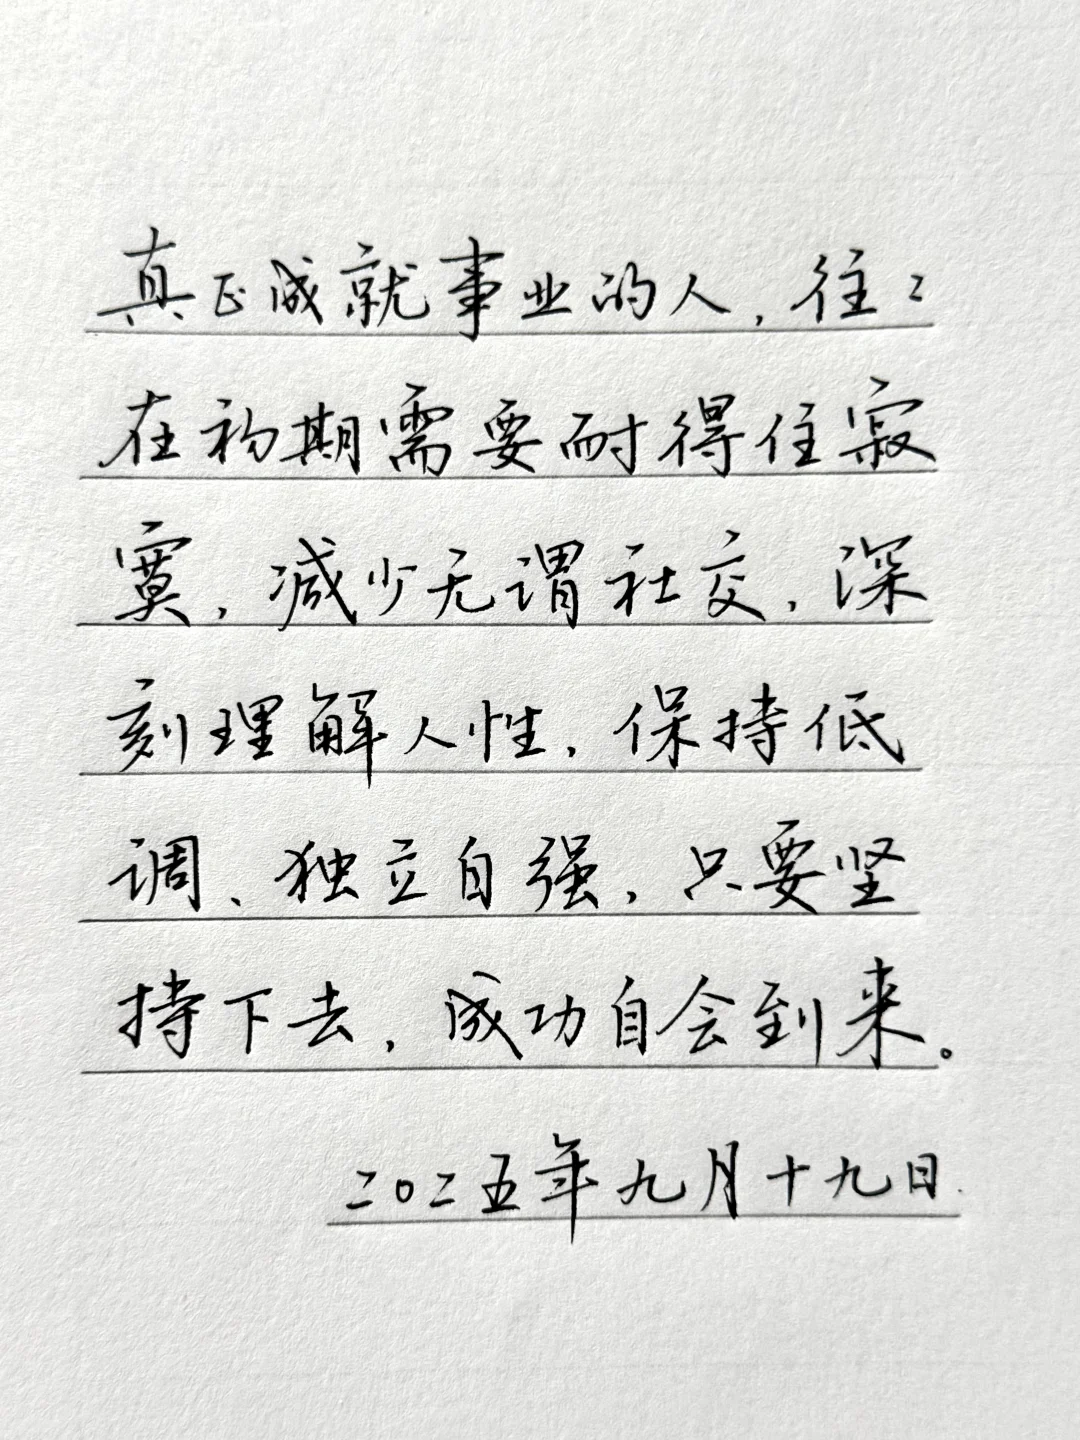 真正成就事业的人，往々
在初期需要耐得住寂
寞，减少无谓社交，深
刻理解人性，保持低
调、独立自强，只要坚
持下去，成功自会到来。
二〇二五年九月十九日.